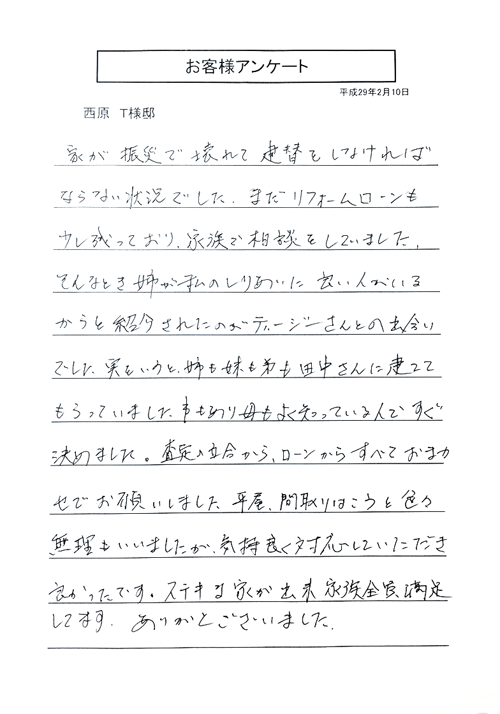 お客様アンケート
平成29年2月10日
西原 T様邸
家が振災で壊れて建替をしなければ
ならない状況でした。まだリフォームローンも
少し残っており、家族で相談をしていました。
そんなとき姉が私のしりあいに良い人がいる
からと紹介されたのがティージーさんとの出会い
でした。実というと、姉も妹も弟も田中さんに建てて
もらっていました。事もあり母もよく知っている人ですぐ
決めました。査定の立合から、ローンからすべておまか
せでお願いしました。平屋、間取りはこうと色々
無理もいいましたが、気持良く対応していただき
良かったです。ステキな家が出来家族全員満足
してます。ありがとございました。